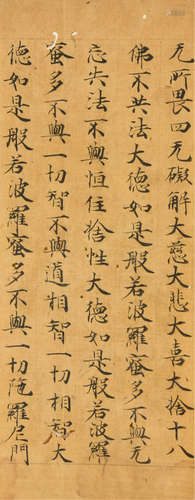 无所畏四无礙解大慈大悲大喜大捨十八
佛不共法大德如是般若波羅蜜多不與无
忘失法不與恒住捨性大德如是般若波羅
蜜多不與一切智不與道相智一切相智大
德如是般若波羅蜜多不與一切陁羅尼門